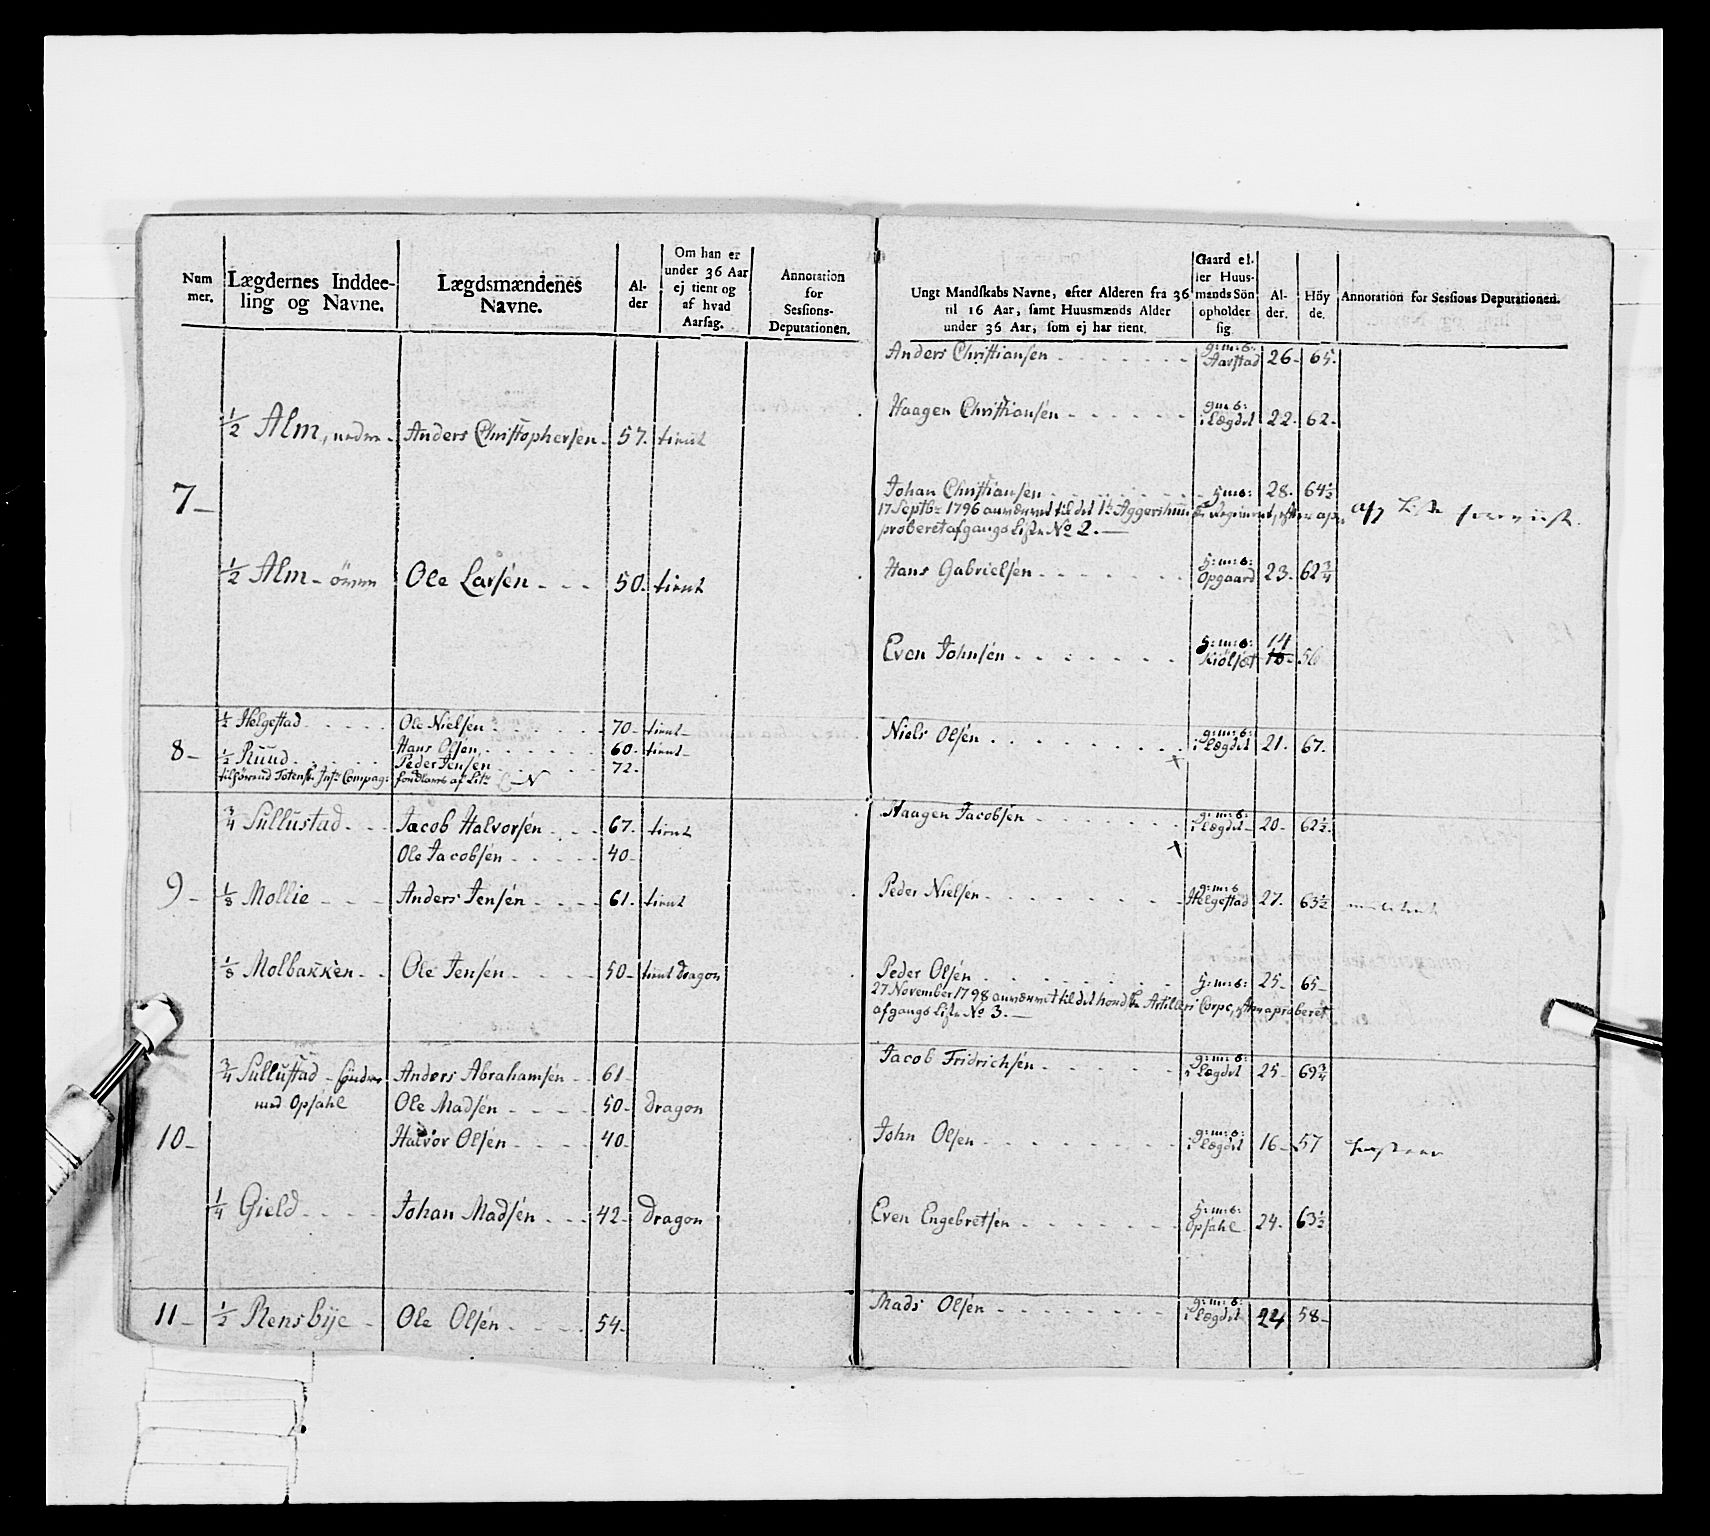 Num
mer.
Lægdernes Inddee-
ling og Navne.
Lægdsmændenes
Navne.
Al-
der
Om han er
under 36 Aar
ej tient og
af hvad
Aarsag.
Annotation
for
Sessions-
Deputationen.
Ungt Mandskabs Navne, efter Alderen fra 36
til 16 Aar, samt Huusmænds Alder
under 36 Aar, som ej har tient.
Gaard el-
ler Huus-
mands Sön
opholder
sig.
Al-
der.
Höy
de.
Annotation for Sessions Deputationen.
7 -
1/2 Alm, nedre - Anders Christophersen - 57. tient
1/2 Alm - övre Ole Larsen - - - 50. tient
Anders Christiansen g: m: s: Aarstad 26. 65.
Haagen Christiansen g: m: s: i Lægdet 22. 62.
Johan Christiansen h: m: s: 28. 64 1/2
17 Septbr 1796 anværvet til det 1te Aggershuusiske Regiment, efter ap-
proberet afgangs Liste No 2. —
Hans Gabrielsen h: m: s: Opgaard 23. 62 3/4
Even Johnsen h: m: s: Kiölset 14 56
8 -
1/2 Helgestad Ole Nielsen 70 tient
Hans Olsen 60 tient
1/2 Ruud Peder Jensen 72.
Niels Olsen g: m: s: i Lægdet 21. 67.
9 -
3/4 Sullustad Jacob Halvorsen 67. tient
Ole Jacobsen 40
1/8 Mollie Anders Jensen 61. tient
1/8 Molbakken Ole Jensen 50 tient dragon
Haagen Jacobsen g: m: s: i Lægdet 20 62 1/2
Peder Nielsen g: m: s Helgestad 27. 63 1/2
Peder Olsen h: m: s: 25 65
27 November 1798 anværvet til det nordske Artilleri Corps, efter aproberet
afgangs Liste No 3. —
10 -
3/4 Sullustad - söndre Anders Abrahamsen 61
med Opsahl Ole Madsen 50 dragon
Halvor Olsen 40
1/4 Gield Johan Madsen 42 dragon
Jacob Fridrichsen g: m: s: i Lægdet 25 69 3/4
John Olsen g: m: s: i Lægdet 16 57
Even Engebretsen h: m: s: Opsahl 24. 63 1/2
11 - 1/2 Rensbye Ole Olsen 54
Mads Olsen g: m: s: i Lægdet 24 58